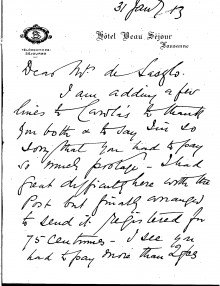 31 Jan/13
Hôtel Beau Séjour
Lausanne
TÉLÉGRAMMES:
SÉJOURED
Dear Mrs de Laszlo.
I am adding a few
lines to Carola's to thank
you both & to say I'm so
sorry that you had to pay
so much postage - I had
great difficulty here with the
Post but finally arranged
to send it registered for
75 centimes - I see you
had to pay more than